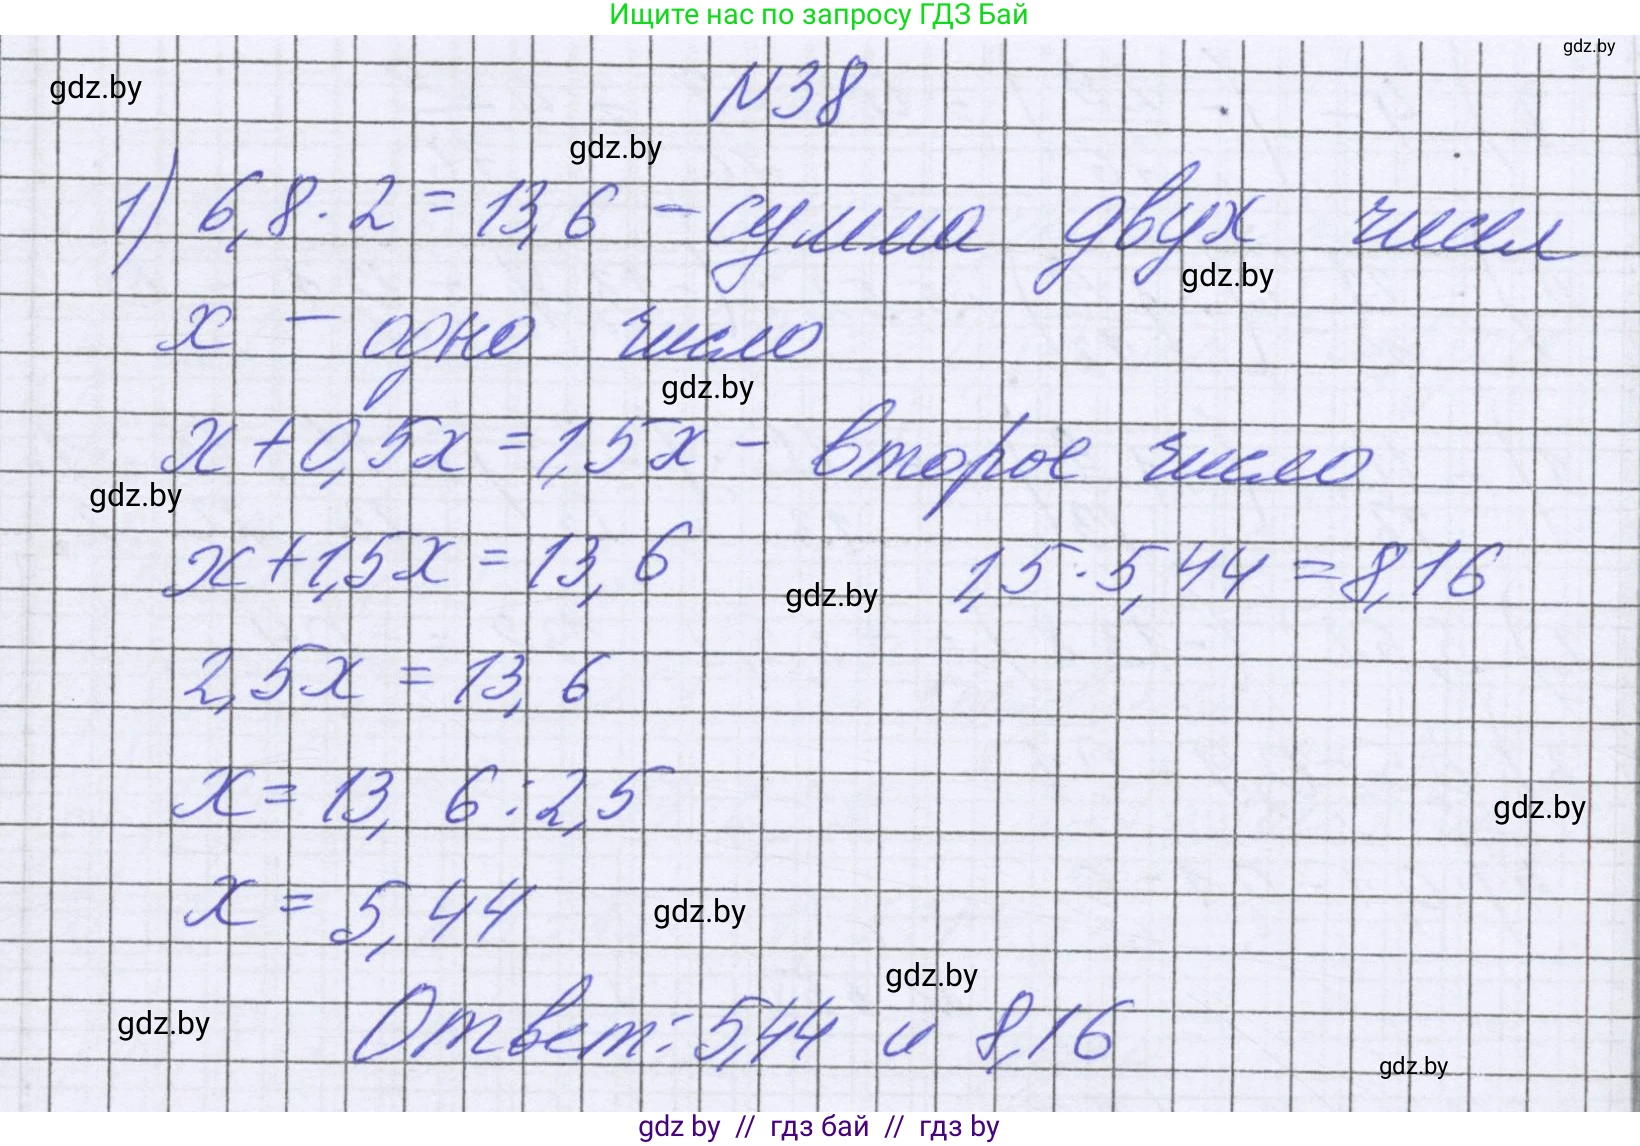 Ищите нас по запросу ГДЗ Бай
gdz.by
gdz.by
N38
gdz.by
1) 6,8 · 2 = 13,6 – сумма двух чисел
gdz.by
x – одно число
gdz.by
x + 0,5x = 1,5x – второе число
gdz.by
x + 1,5x = 13,6 1,5 · 5,44 = 8,16
gdz.by
2,5x = 13,6
x = 13,6 : 2,5
gdz.by
x = 5,44
gdz.by
gdz.by
Ответ: 5,44 и 8,16
gdz.by
gdz.by
gdz by // гдз бай // гдз by